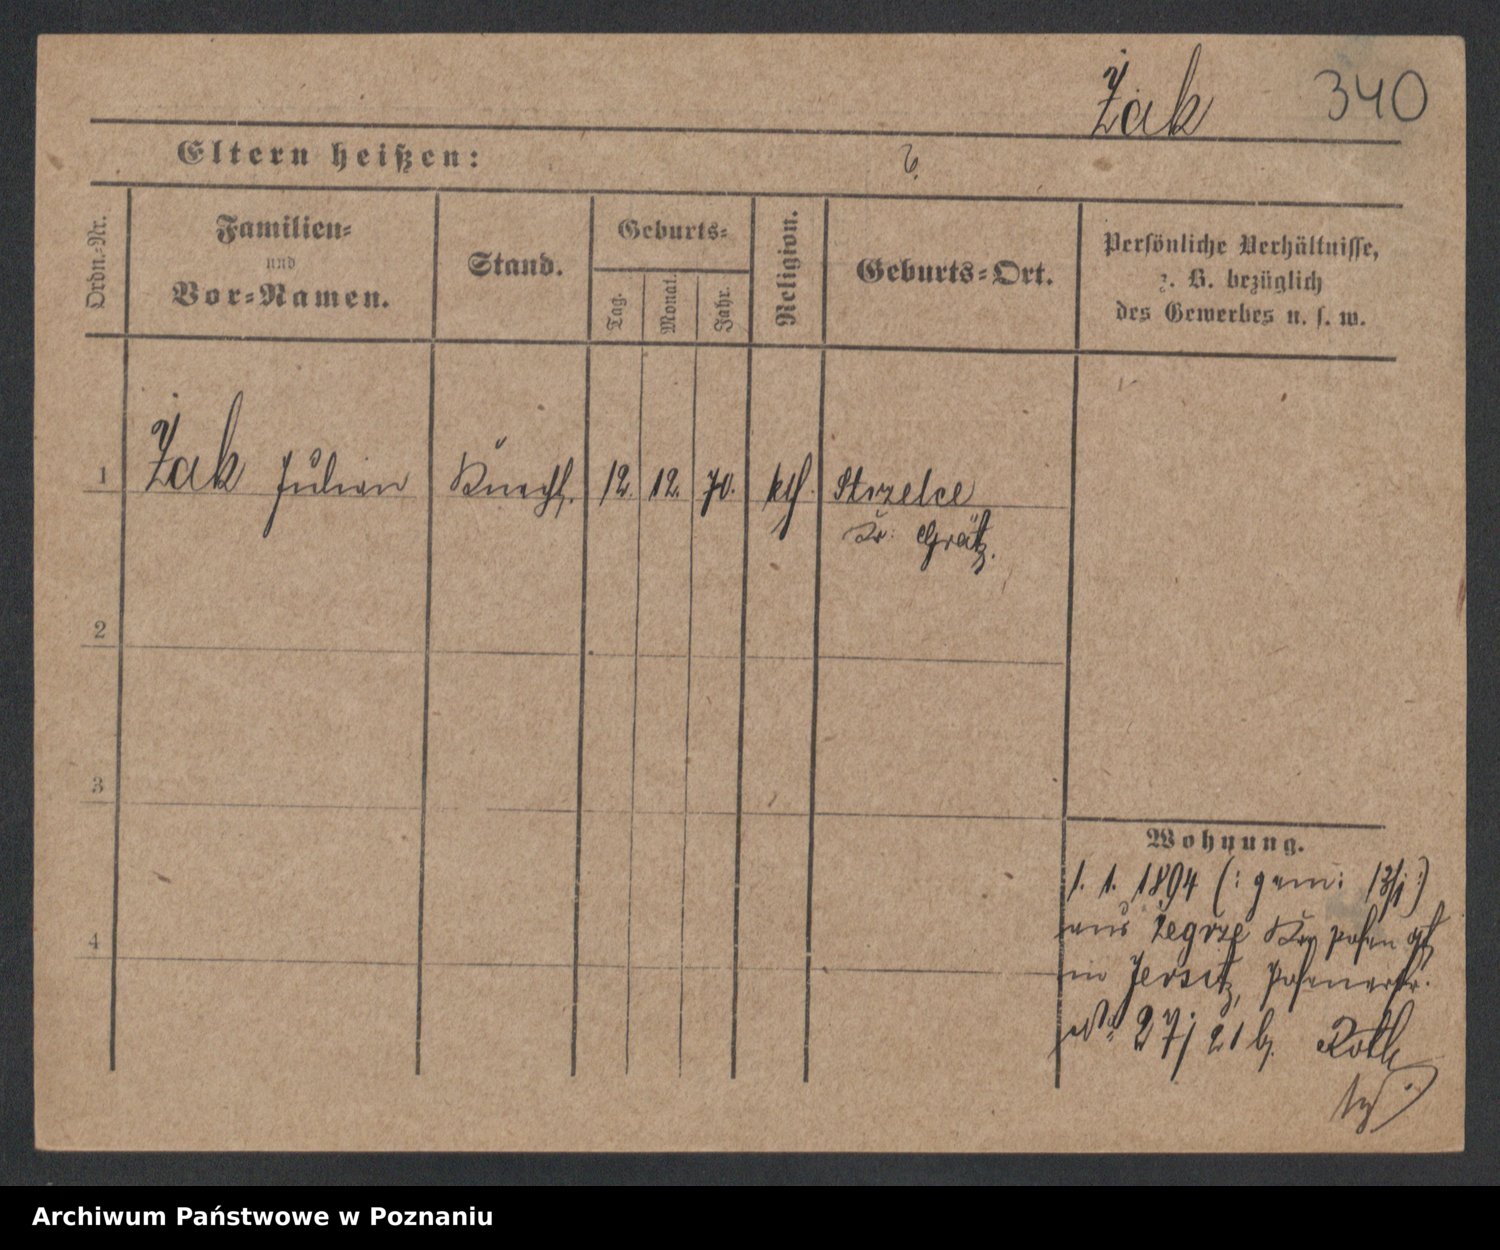 Żak 340
Eltern heißen:
Ordn.-Nr.
Familien-
und
Vor-Namen.
Stand.
Geburts-
Tag.
Monat.
Jahr.
Religion.
Geburts-Ort.
Persönliche Verhältnisse,
z. B. bezüglich
des Gewerbes u. s. w.
1 Żak Julian Knecht. 12. 12. 70. kth. Strzelce
Kr: Grätz.
2
3
4
Wohnung.
1. 1. 1894 (: gem: 13/1 :)
aus Żegrze Krs Posen
in Jersitz, Posenerstr.
No 27/ 21 b.
Archiwum Państwowe w Poznaniu